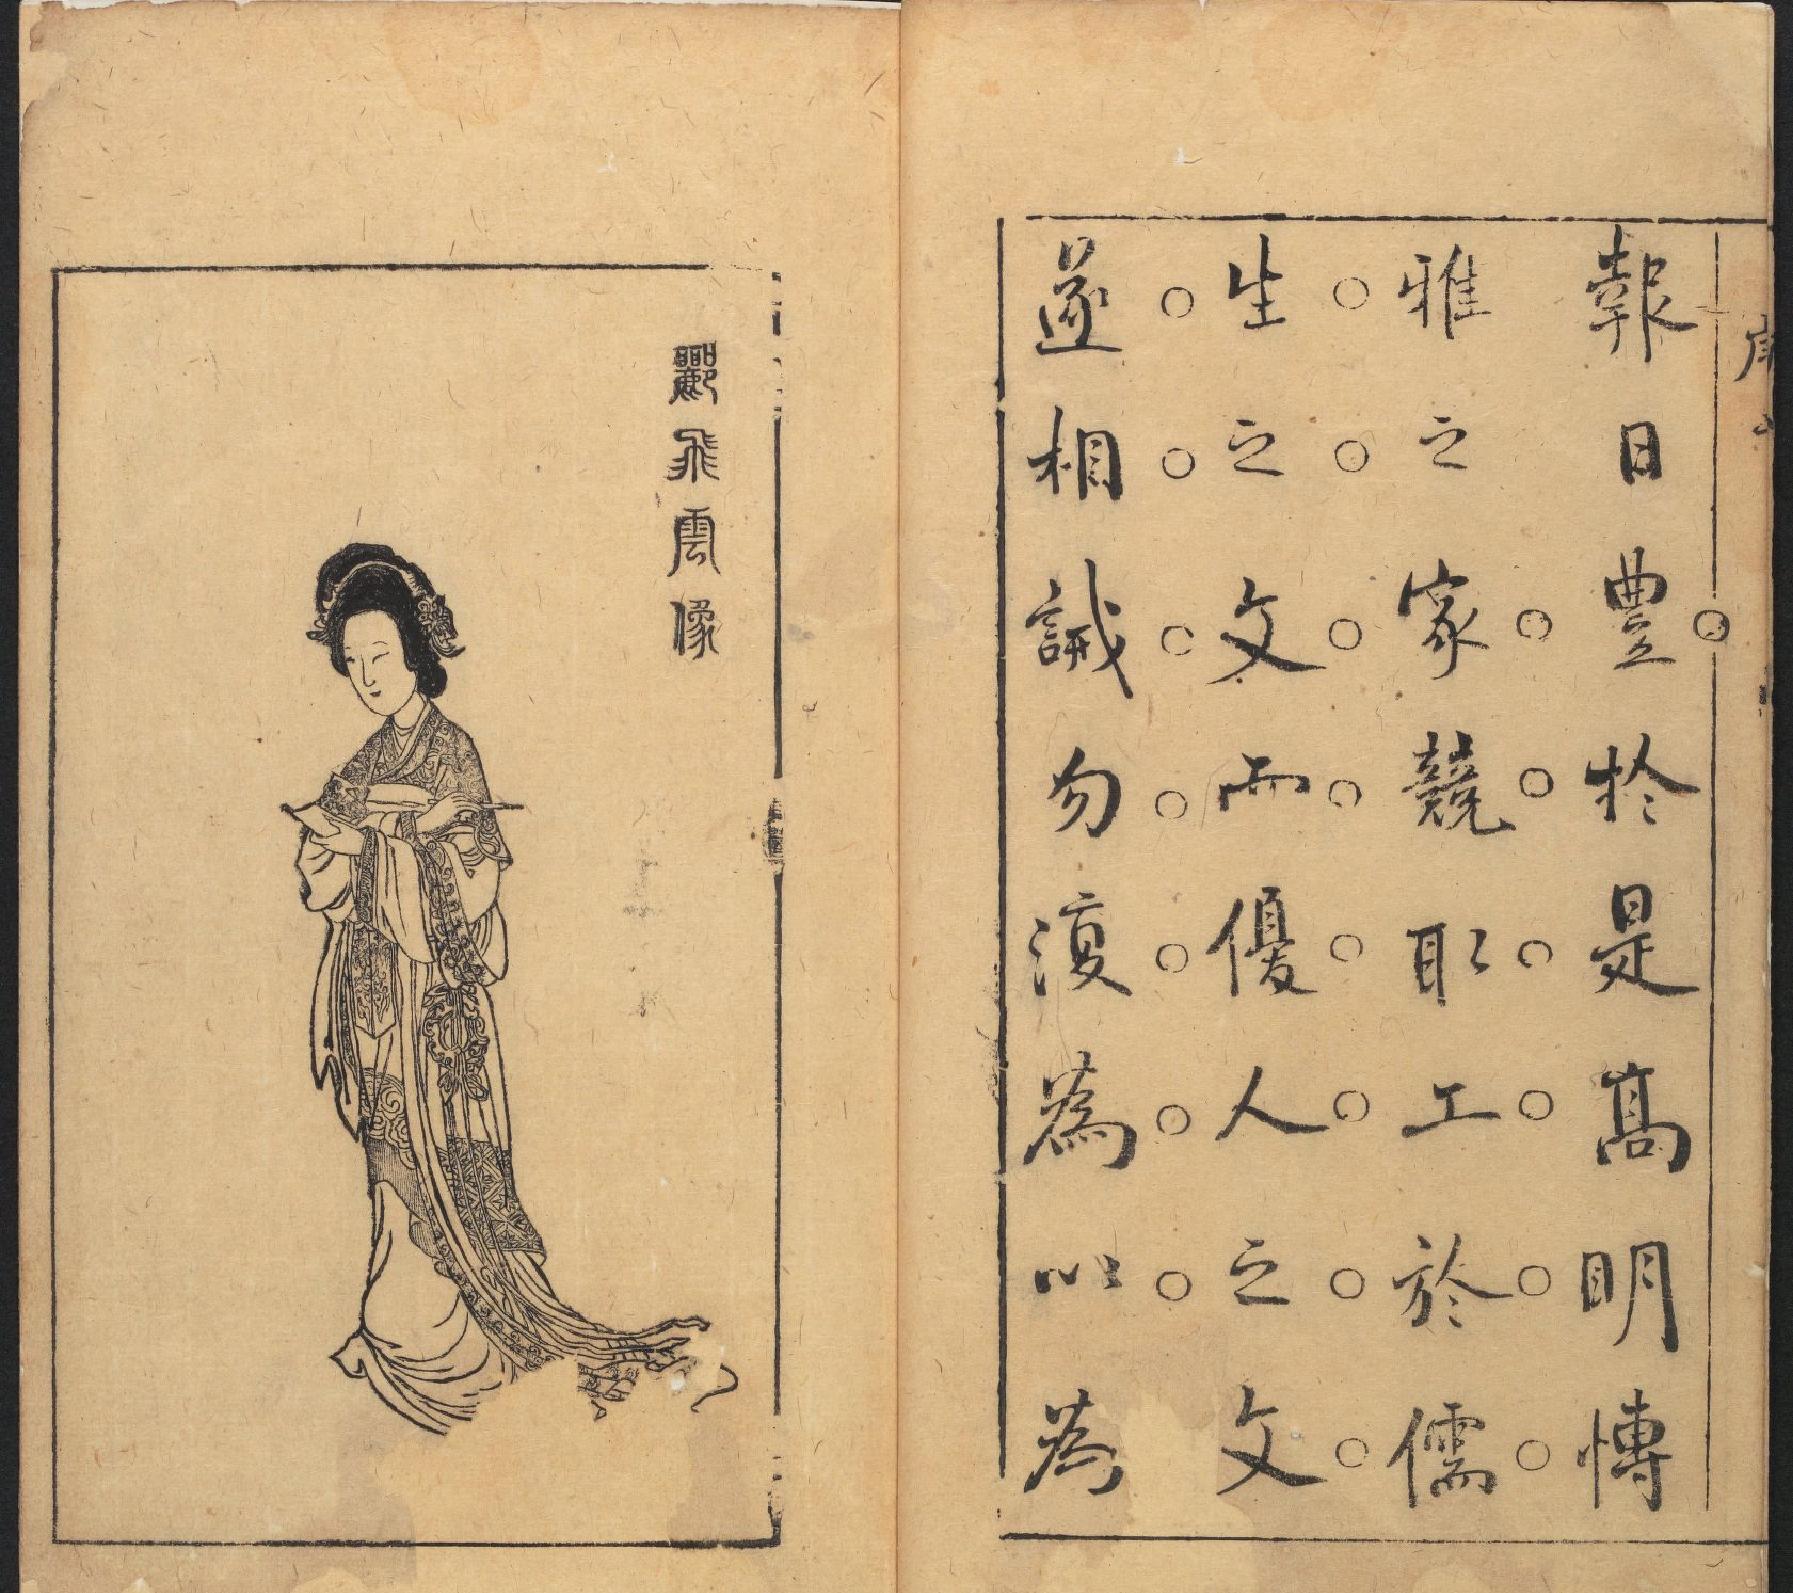 序
報日豊扵是髙明博
雅之家競耻工於儒
生之文而優人之文
遂相誡勿復為以為
酈飛雲像